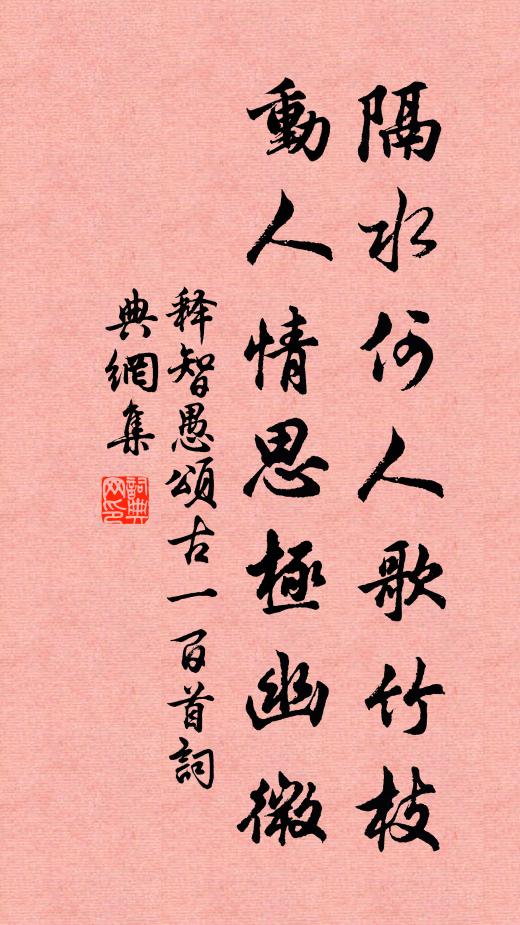 隔水何人歌竹枝
動人情思極幽微
释智愚頌古一百首詞
典網集
詞典
网印